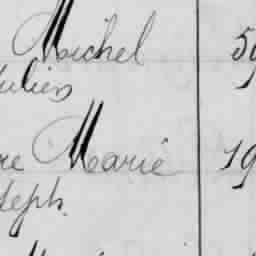 Michel 59
Julien
re Marie 19
Joseph.